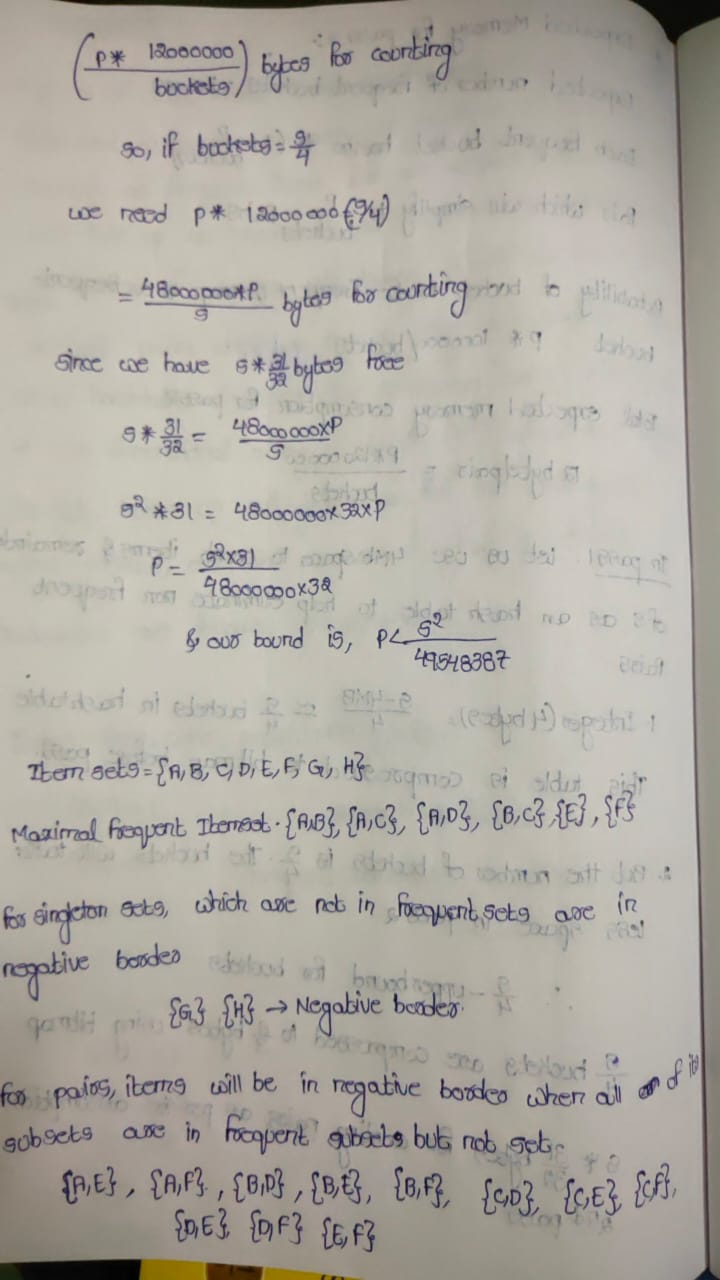 (P* 12000000 / buckets) bytes for counting
so, if buckets = S/4
we need P* 12000000 (S/4)
= 48000000*P / S bytes for counting
since we have S* 31/32 bytes free
S* 31/32 = 48000000xP / S
S² *31 = 48000000x32xP
P = S²x31 / 48000000x32
& our bound is, P< S² / 49548387
Item sets = {A, B, C, D, E, F, G, H}
Maximal frequent Itemset - {A,B}, {A,C}, {A,D}, {B,C}, {E}, {F}
for singleton sets, which are not in frequent sets are in
negative border
{G} {H} → Negative border.
for pairs, items will be in negative border when all of
subsets are in frequent subsets but not set.
{A,E}, {A,F}, {B,D}, {B,E}, {B,F}, {C,D}, {C,E}, {C,F},
{D,E}, {D,F} {E,F}